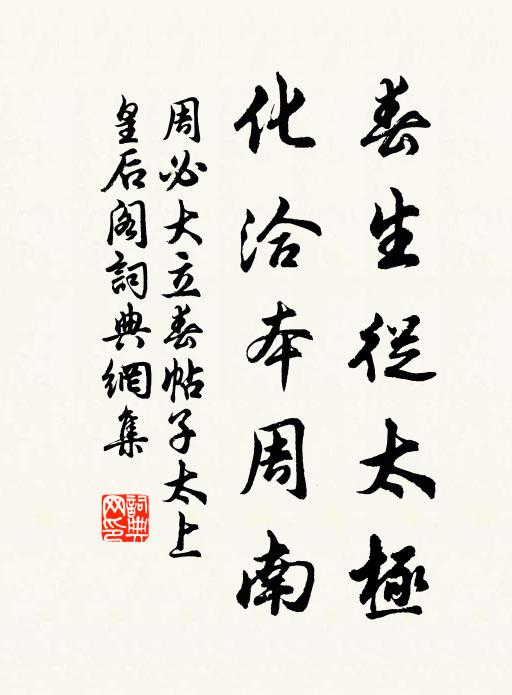 春生從太極
化洽本周南
周必大立春帖子太上
皇后閣詞典網集
詞典
网印